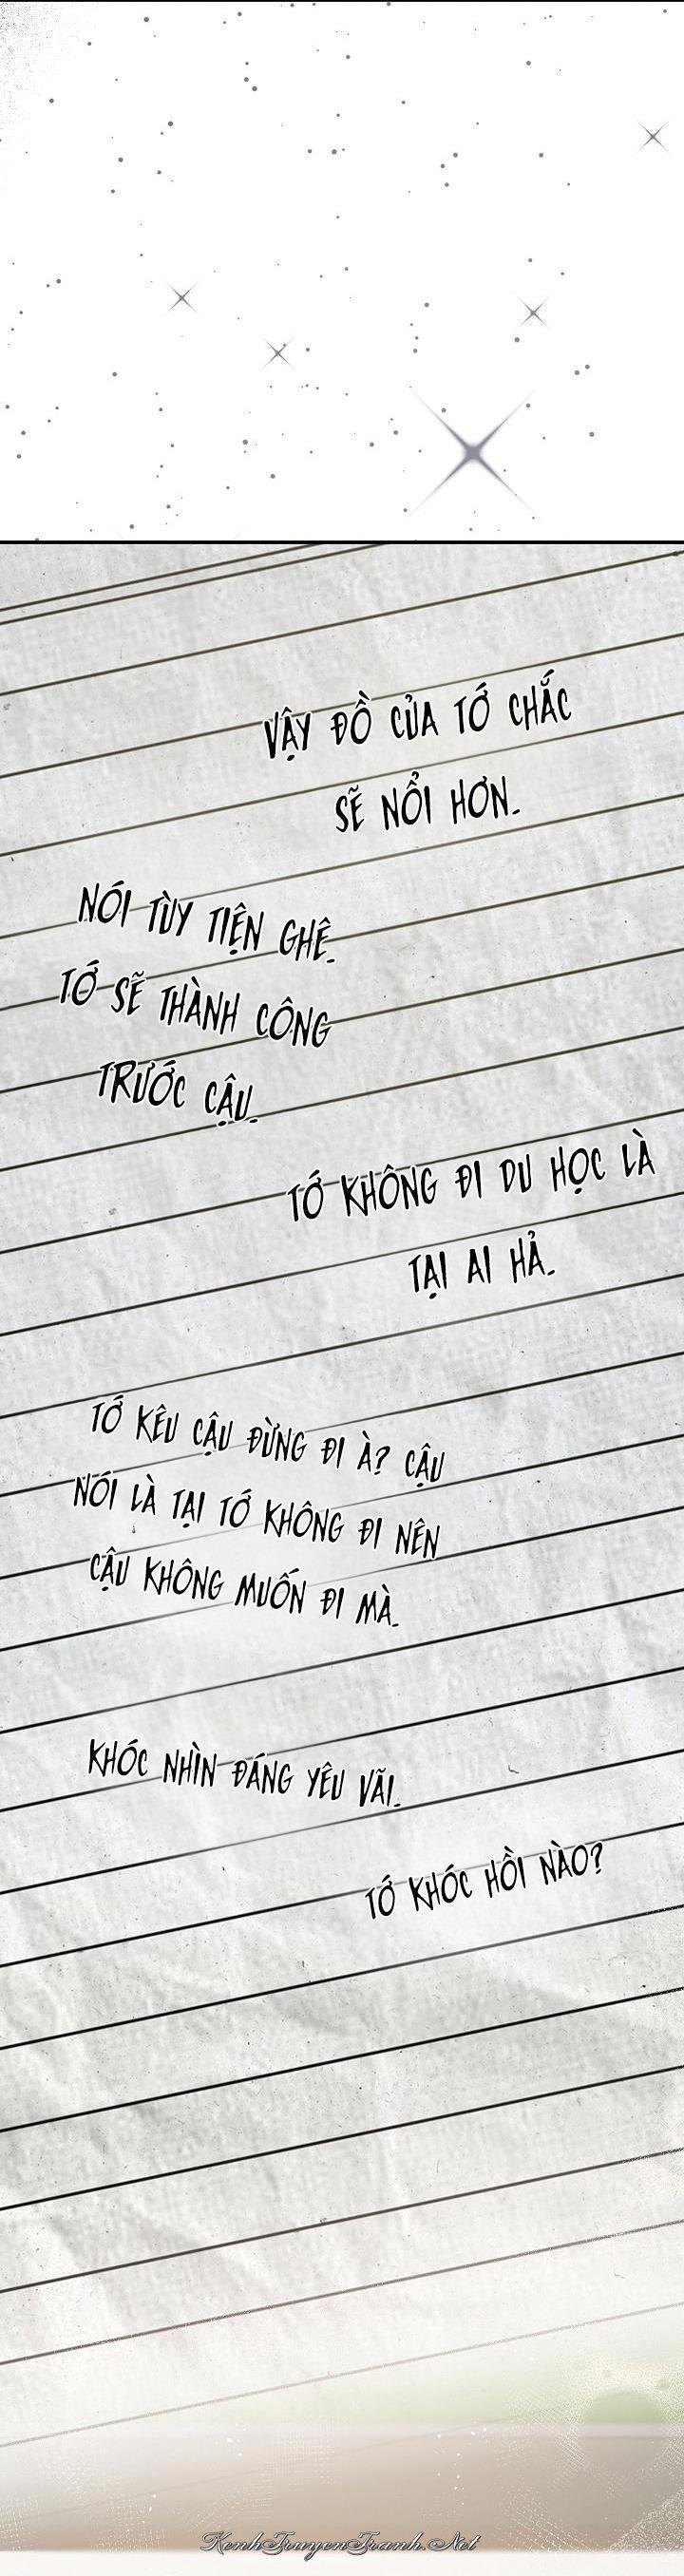 VẬY ĐỒ CỦA TỚ CHẮC
SẼ NỔI HƠN.
NÓI TÙY TIỆN GHÊ.
TỚ SẼ THÀNH CÔNG
TRƯỚC CẬU.
TỚ KHÔNG ĐI DU HỌC LÀ
TẠI AI HẢ.
TỚ KÊU CẬU ĐỪNG ĐI À? CẬU
NÓI LÀ TẠI TỚ KHÔNG ĐI NÊN
CẬU KHÔNG MUỐN ĐI MÀ.
KHÓC NHÌN ĐÁNG YÊU VÃI.
TỚ KHÓC HỒI NÀO?
KenhTruyenTranh.Net